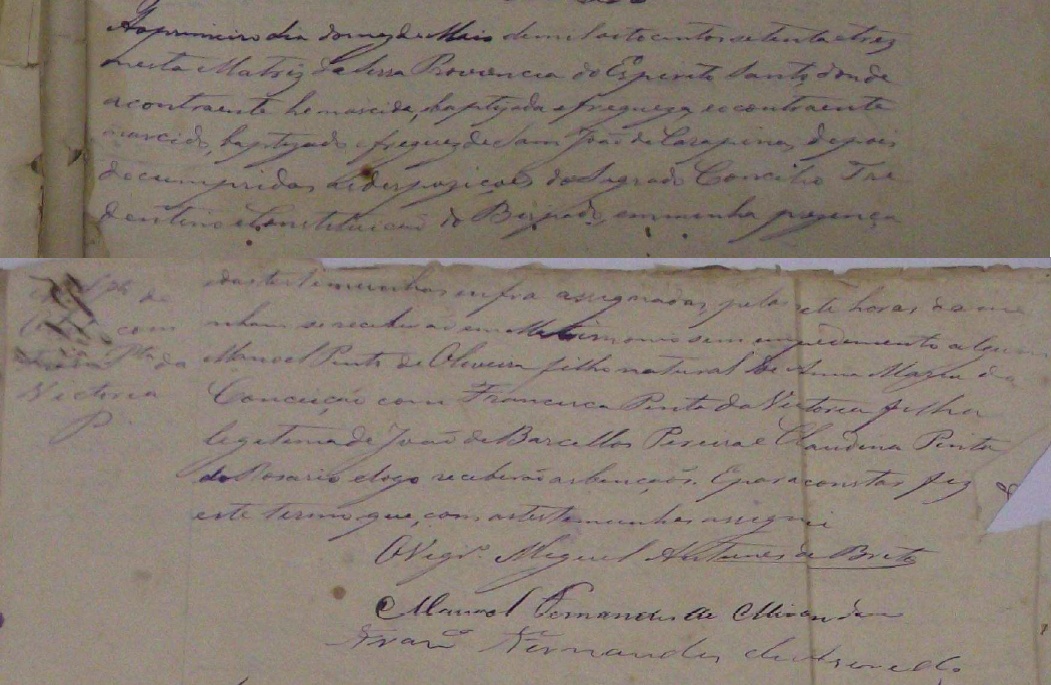 Ao primeiro dia do mez de Maio de mil oito centos setenta e tres
nesta Matriz da Serra Provencia do Espirito Santo, donde
a contraente he nascida, baptizada e fregueza, e o contraente
nascido, baptizado e freguez de Sam João de Carapina, depois
de cumpridas as despozições do Sagrado Concilio Tre
dentino e Constituicão do Bispado, em minha prezença
e das testemunhas infra assignadas, pelas sete horas da ma
nham se receberão em Matrimonio sem empedemento algum
Manoel Pinto de Oliveira filho natural de Anna Maria da
Conceição com Francisca Pinta da Victoria filha
legitima de João de Barcellos Pereira e Claudina Pinta
do Rosario e logo receberão as bençaõs. E para constar fiz
este termo que, com as testemunhas assignei
O Vigr.º Miguel Antunes de Brito
Manoel Fernandes de Miranda
Fran.co Fernandes
Pto de
com
Pta da
Victoria
P.